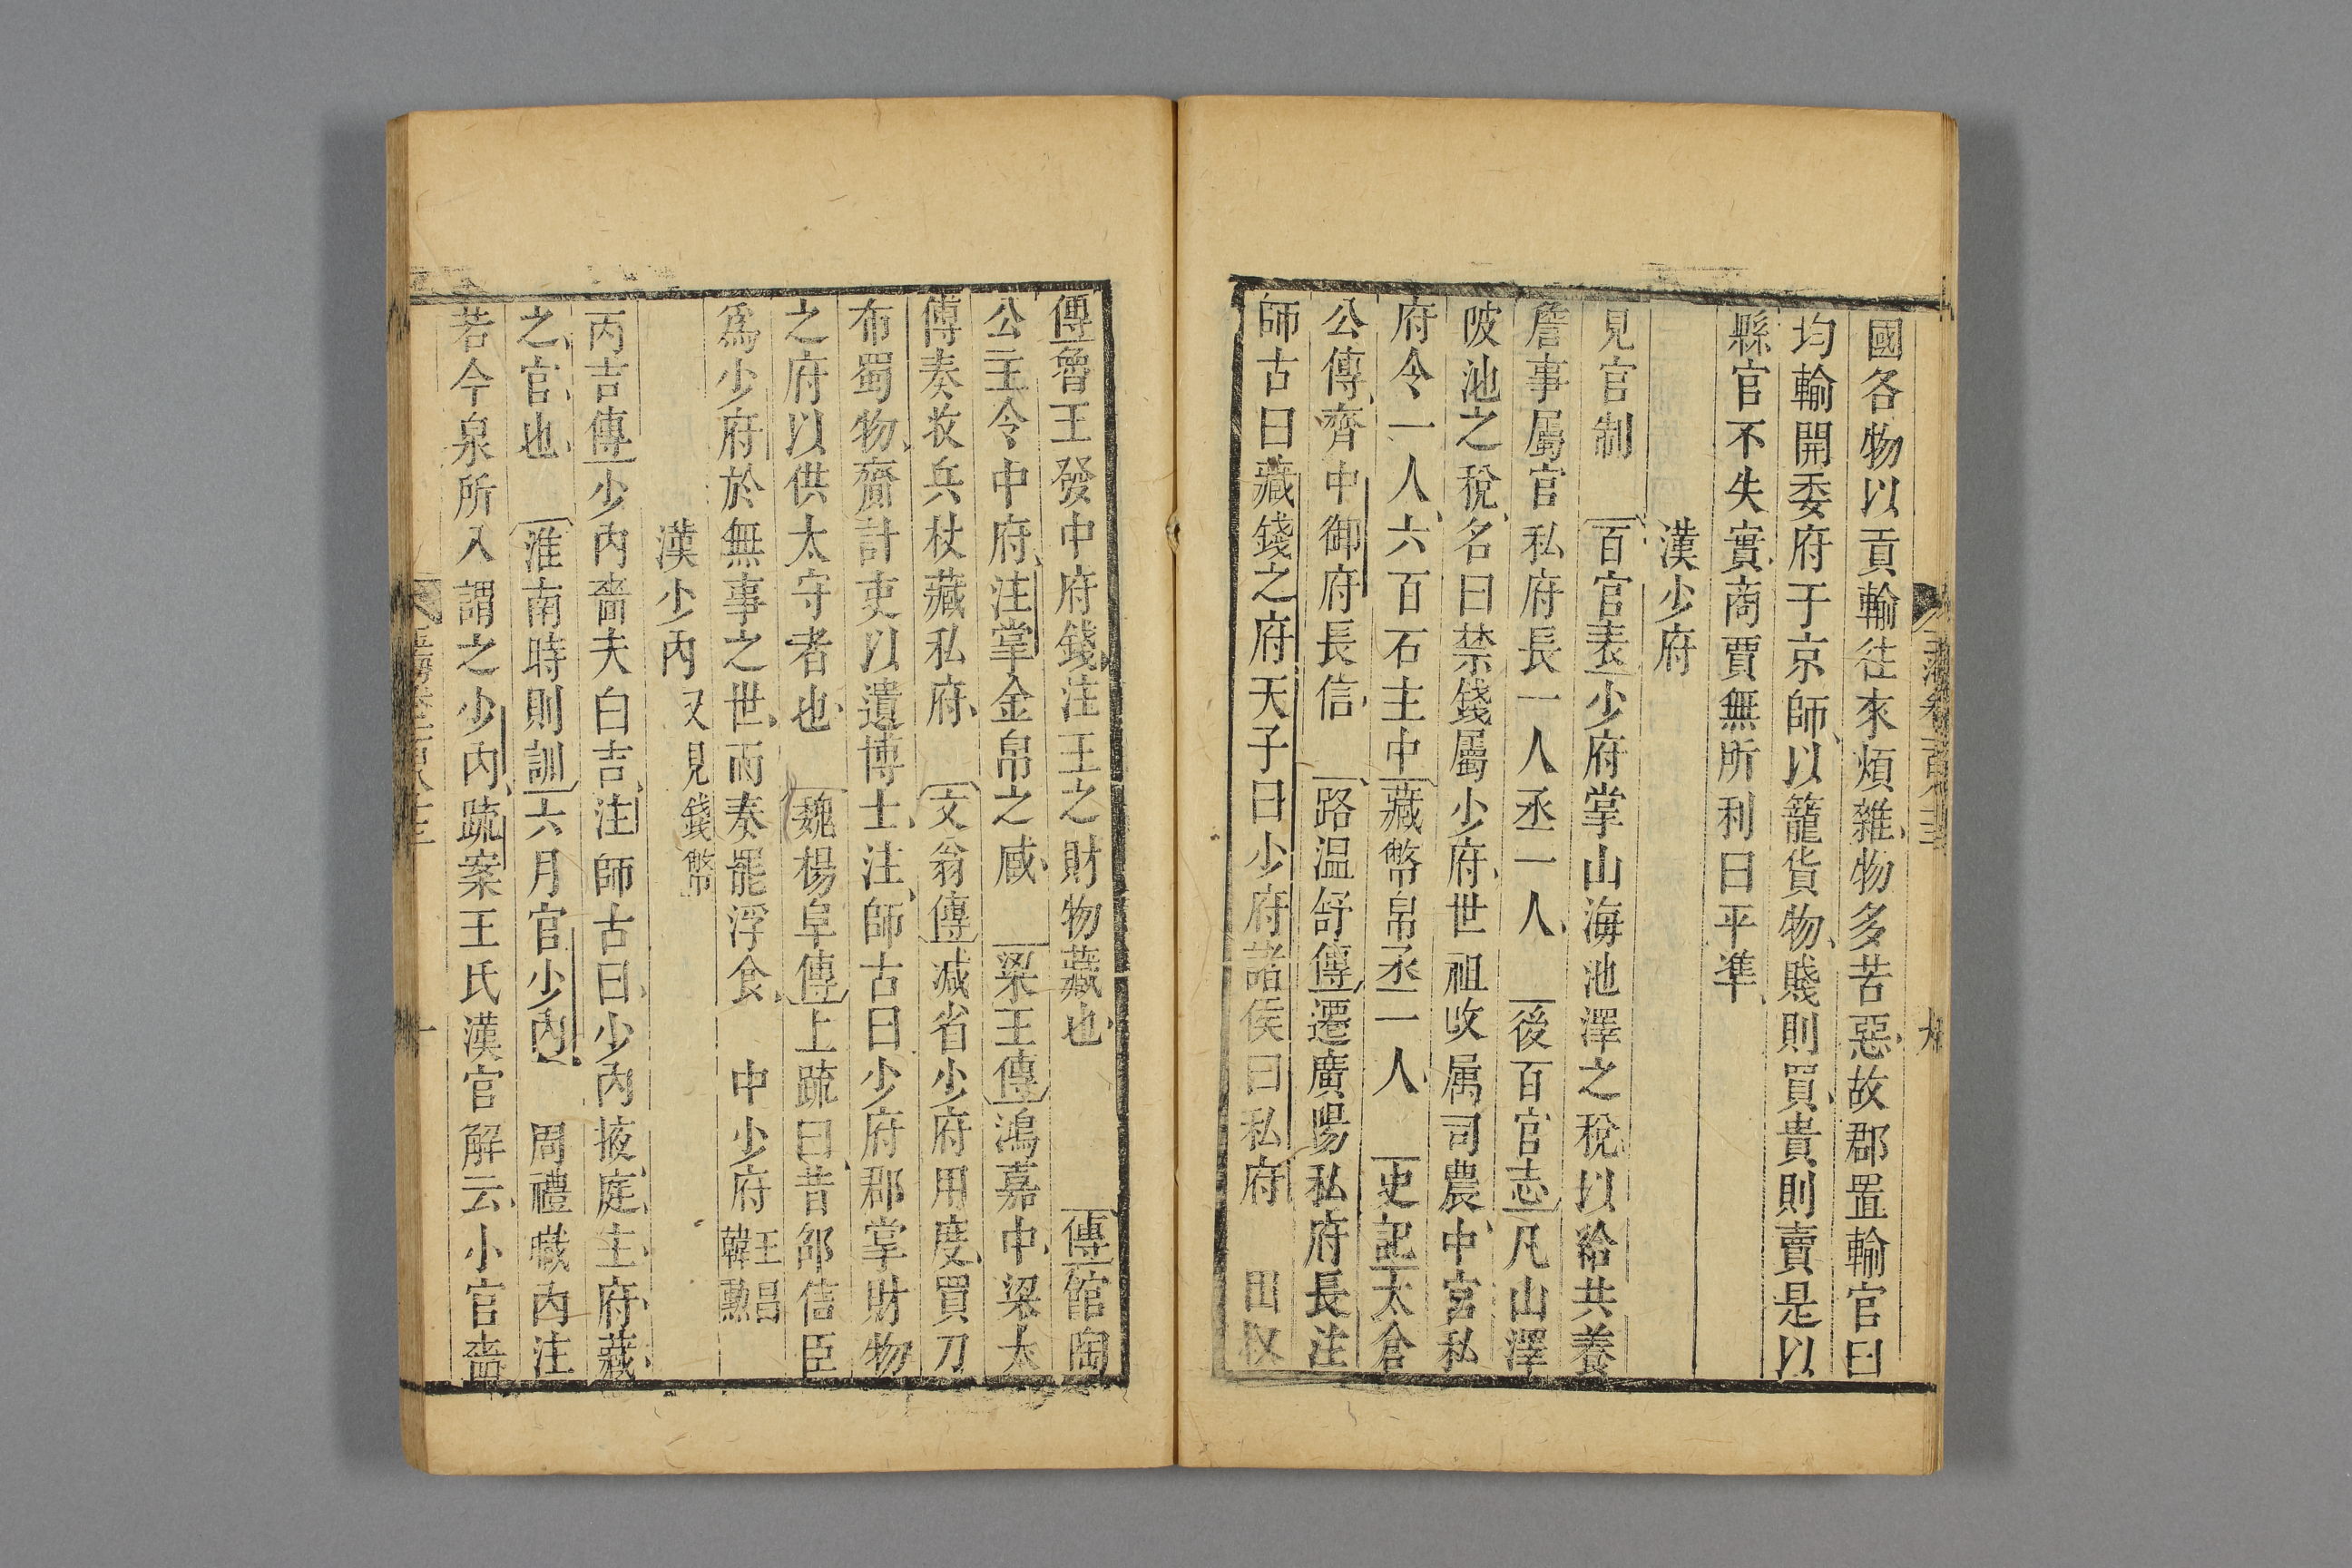 國各物以貢輸往來煩雜物多苦惡故郡置輸官曰
均輸開委府于京師以籠貨物賤則買貴則賣是以
縣官不失實商賈無所利曰平準
漢少府
見官制 百官表少府掌山海池澤之稅以給共養
詹事屬官私府長一人丞一人 後百官志凡山澤
陂池之稅名曰禁錢屬少府世祖改属司農中宮私
府令一人六百石主中藏幣帛丞一人 史記太倉
公傳齊中御府長信 路温舒傳遷廣陽私府長注
師古曰藏錢之府天子曰少府諸侯曰私府 田叔
傳魯王發中府錢注王之財物藏也 傳館陶
公主令中府注掌金帛之臧 梁王傳鴻嘉中梁太
傅奏收兵杖藏私府 文翁傳減省少府用度買刀
布蜀物齎計吏以遺博士注師古曰少府郡掌財物
之府以供太守者也 魏楊阜傳上疏曰昔邵信臣
爲少府於無事之世而奏罷浮食 中少府 王昌韓勲
漢少內 又見錢幣
丙吉傳少內嗇夫白吉注師古曰少內掖庭主府藏
之官也 淮南時則訓六月官少內 周禮職內注
若今泉所入謂之少內疏案王氏漢官解云小官嗇